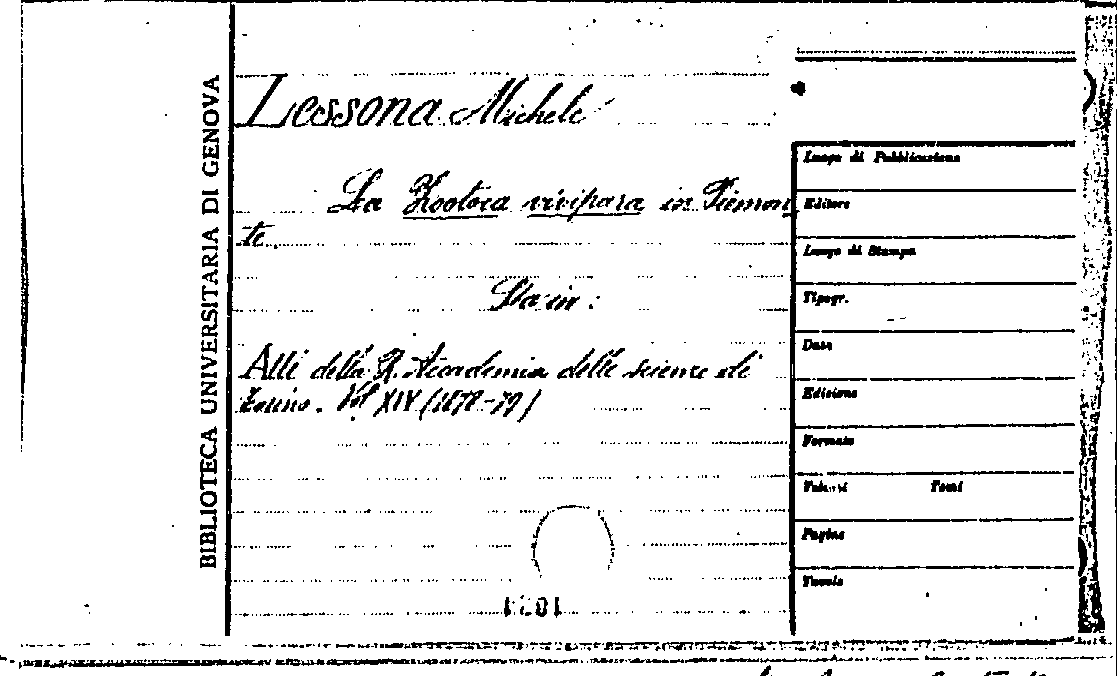 BIBLIOTECA UNIVERSITARIA DI GENOVA
Lessona Michele
La Zootoca vivipara in Piemon
te.
Sta in:
Atti della R. Accademia delle scienze di
Torino. Vol XIV (1878-79)
Luogo di Pubblicazione
Editore
Luogo di Stampa
Tipogr.
Data
Edizione
Formato
Volumi Tomi
Pagine
Tavole